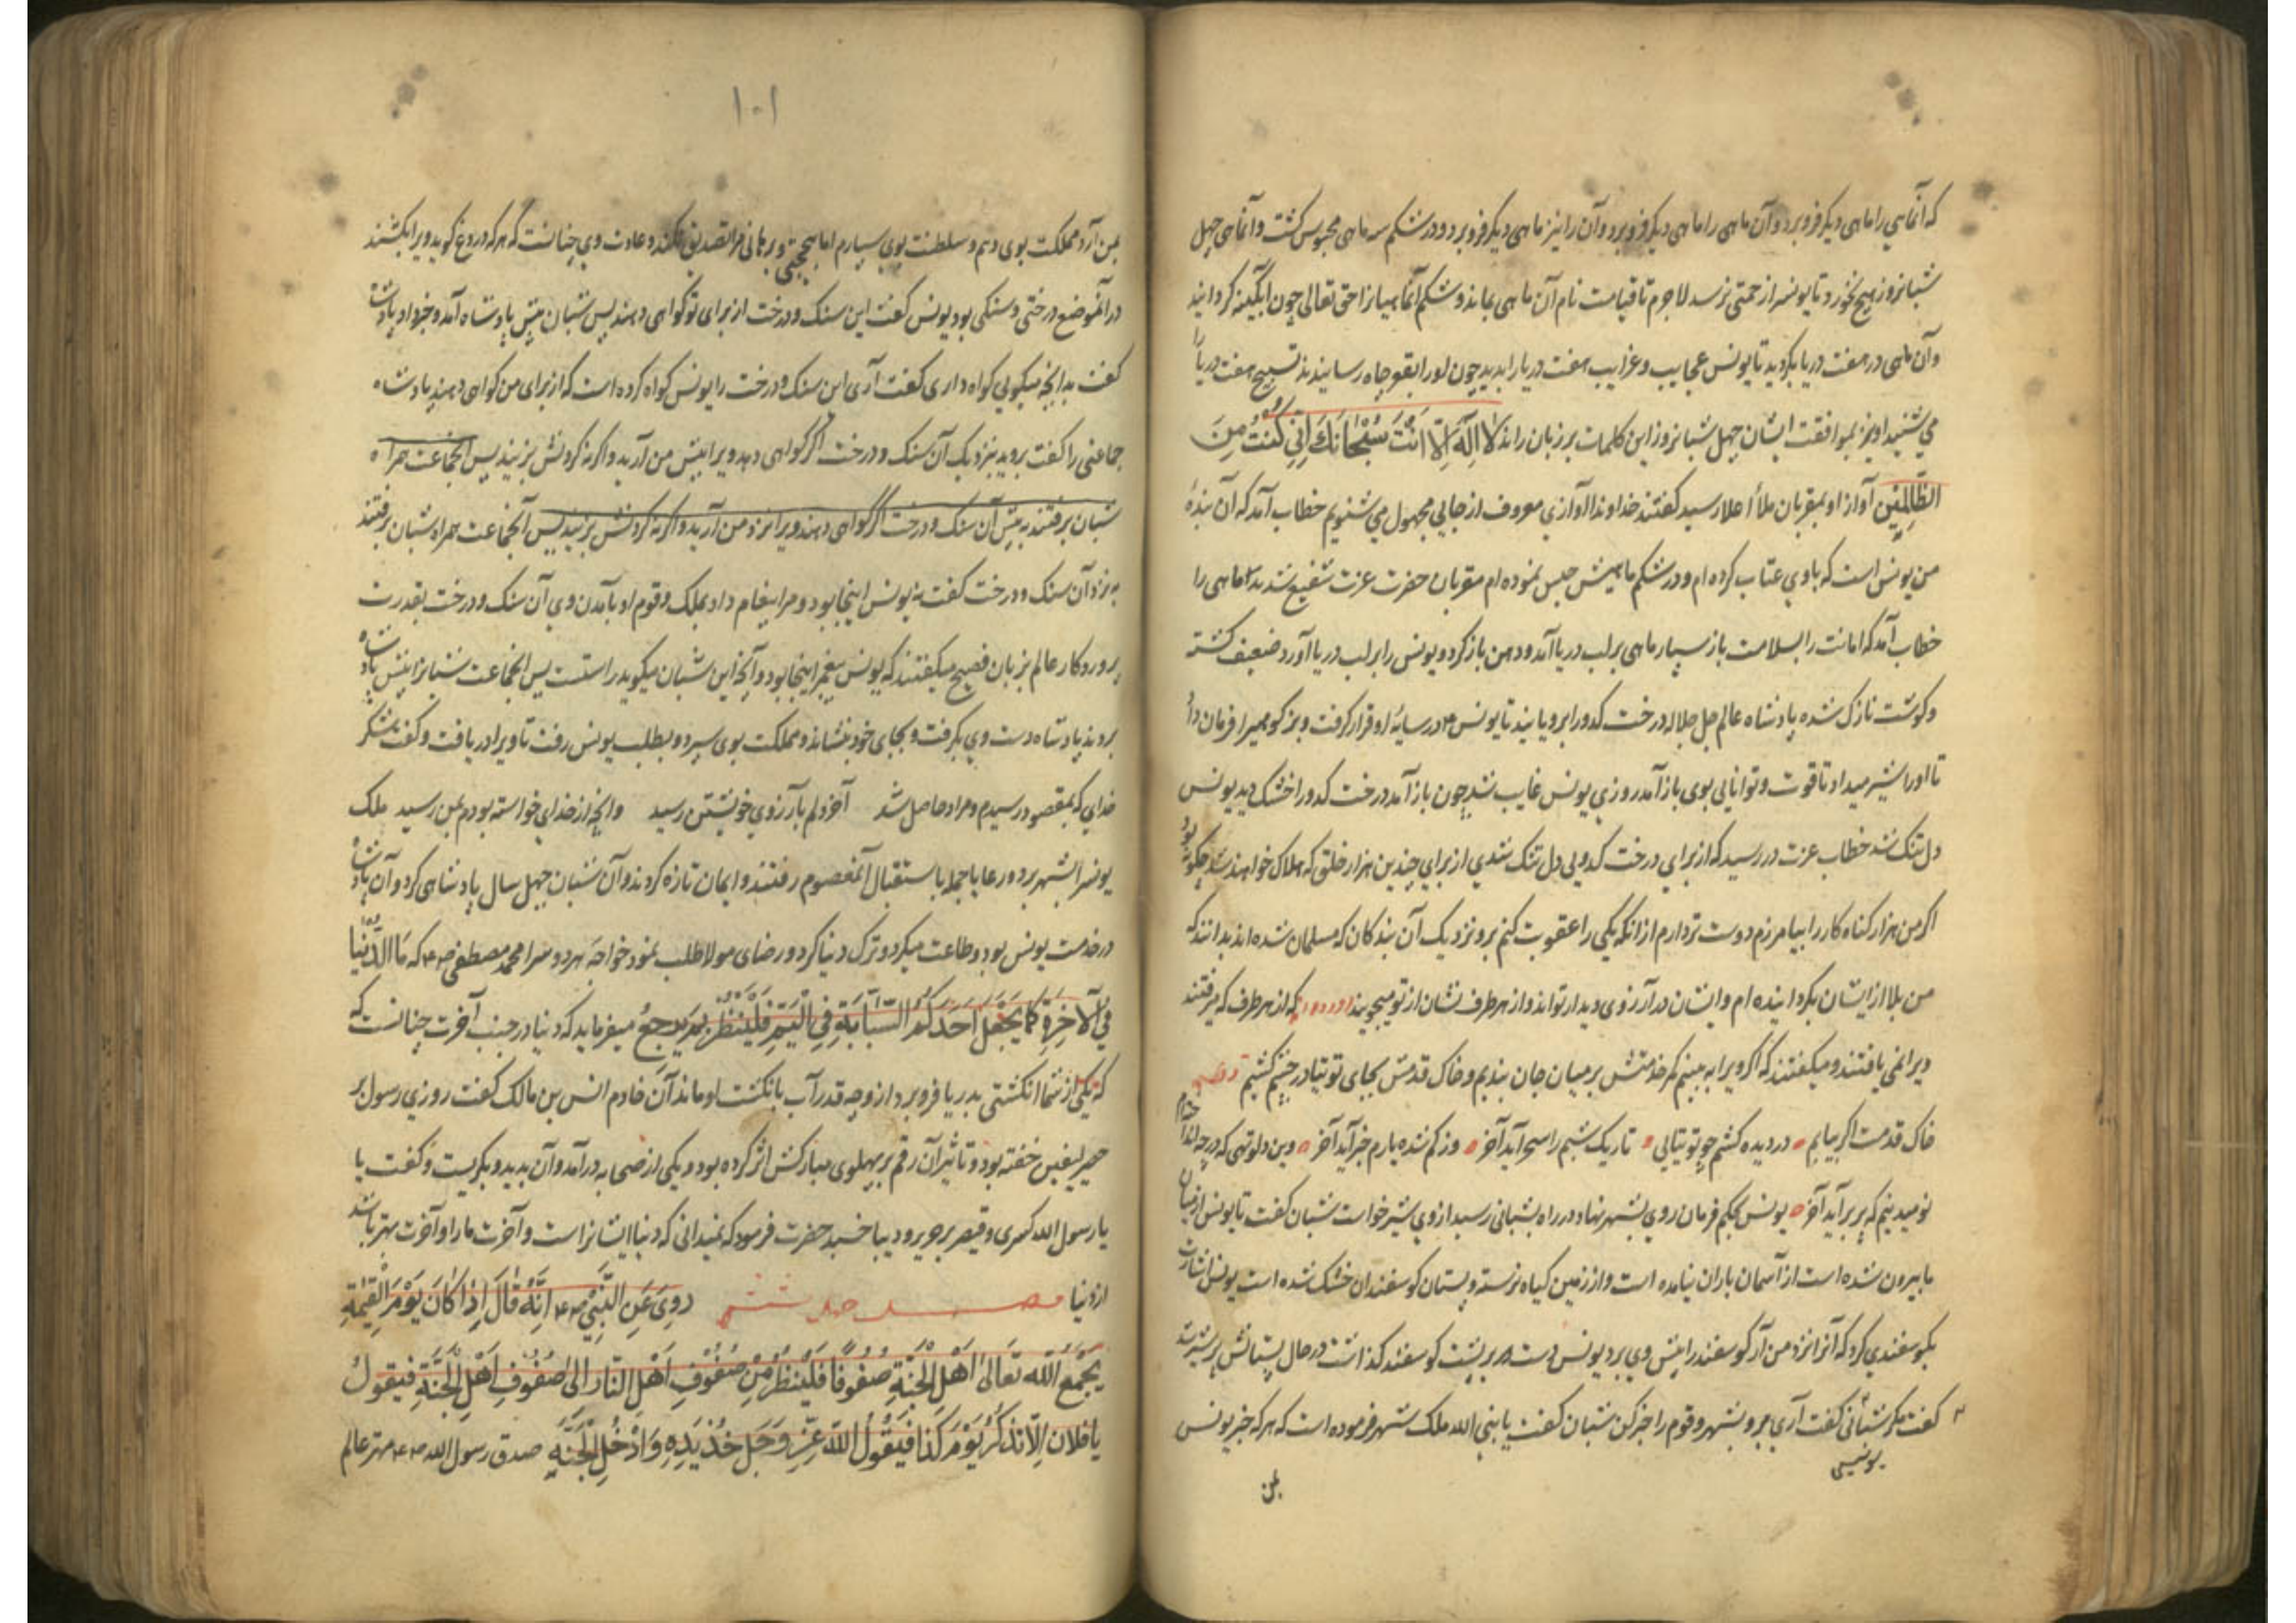 که آنماهی را ماهی دیگر فرو برد و آن ماهی را ماهی دیگر فرو برد و آن را نیز ماهی دیگر فرو برد و در شکم سه ماهی محبوس گشت و آنماهی چهل
شبانروز هیچ نخورد تا یونس را زحمتی نرسد لاجرم تا قیامت نام آن ماهی بماند و شکم آنماهیانرا حق تعالی چون آبگینه گردانید
و آن ماهی در هفت دریا بگردید تا یونس عجایب و غرایب هفت دریا را بدید چون او را بقعر چاه رسانیدند تسبیح هفت دریا را
می شنید او نیز بموافقت ایشان چهل شبانروز این کلمات بر زبان راند لا اِلٰهَ اِلّا اَنْتَ سُبْحٰانَكَ اِنّي كُنْتُ مِنَ
الظّالِمينَ آواز او بمقربان ملأ اعلا رسید گفتند خداوندا آوازی معروف از جایی مجهول می شنویم خطاب آمد که آن بندهٔ
من یونس است که با وی عتاب کرده ام و در شکم ماهیش حبس نموده ام مقربان حضرت عزت شفیع شدند ماهی را
خطاب آمد که امانت را بسلامت باز سپار ماهی بر لب دریا آمد و دهن باز کرد و یونس را بر لب دریا آورد ضعیف گشته
و گوشت نازک شده پادشاه عالم جل جلاله درخت کدو را برویانید تا یونس در سایهٔ او قرار گرفت و بز کوهی را فرمان داد
تا او را شیر میداد تا قوت و توانایی بوی باز آمد روزی یونس غایب شد چون باز آمد درخت کدو را خشک دید یونس
دل تنک شد خطاب عزت در رسید که از برای درخت کدویی دل تنک شدی از برای چندین هزار خلق که هلاک خواهند شد چگونه بود
اگر من هزار گناه کار را بیامرزم دوست تر دارم از آنکه یکی را عقوبت کنم برو نزدیک آن بندگان که مسلمان شده اند بدانند که
من بلا از ایشان بگردانیده ام و ایشان در آرزوی دیدار تواند و از هر طرف نشان از تو میجویند که از هر طرف که میرفتند
ویرا نمی یافتند و میگفتند که اگر ویرا به بینیم کمر خدمتش بر میان جان بندیم و خاک قدمش بجای توتیا در چشم کشیم
خاک قدمت اگر بیابم در دیده کشم چو توتیائی تا ریک شبم را سحر آید آخر وز گم شده یارم خبر آید آخر وین دولتی که در چه
نومید نیم که بر بر آید آخر یونس بحکم فرمان روی بشهر نهاد و در راه بشبانی رسید از وی شیر خواست شبان گفت تا یونس از میان
ما بیرون شده است از آسمان باران نیامده است و از زمین گیاه نرسته و پستان گوسفندان خشک شده است یونس اشارت
بگوسفندی کرد که آنرا نزد من آر گوسفند را پیش وی برد یونس دست بر پشت گوسفند گذاشت در حال پستانش پر شیر شد
گفت مگر شمائی گفت آری برو بشهر و قوم را خبر کن شبان گفت یا نبی الله ملک شهر فرموده است که هر که خبر یونس
یونسی
بمن
۱۰۱
بمن آرد مملکت بوی دهم و سلطنت بوی سپارم اما بی حجتی و برهانی مرا تصدیق نکند و عادت وی چنانست که هر که دروغ گوید ویرا بکشند
در آنموضع درختی و سنگی بود یونس گفت این سنک و درخت از برای تو گواهی دهند پس شبان پیش پادشاه آمد و خبر داد پادشاه
گفت بدانچه میگویی گواه داری گفت آری این سنک و درخت را یونس گواه کرده است که از برای من گواهی دهند پادشاه
جماعتی را گفت بروید بنزدیک آن سنک و درخت اگر گواهی دهد ویرا پیش من آرید و اگر نه گردنش بزنید پس آنجماعت همراه
شبان برفتند به پیش آن سنک و درخت اگر گواهی دهند ویرا نزد من آرید و اگر نه گردنش بزنید پس آنجماعت همراه شبان برفتند
به نزد آن سنک و درخت گفت نه یونس اینجا بود و مرا پیغام داد بملک و قوم او بآمدن وی آن سنک و درخت بقدرت
پروردگار عالم بزبان فصیح میگفتند که یونس پیغمبر اینجا بود و آنچه این شبان میگوید راستست پس آنجماعت شبانرا پیش پادشاه
بردند پادشاه دست وی بگرفت و بجای خود بنشاند و مملکت بوی سپرد و بطلب یونس رفت تا ویرا دریافت و گفت شکر
خدایی که بمقصود رسیدم و مراد حاصل شد آخر دلم بآرزوی خویشتن رسید و آنچه از خدای خواسته بودم بمن رسید ملک
یونس را بشهر برد و رعایا جمله باستقبال آنمعصوم رفتند و ایمان تازه کردند و آن شبان چهل سال پادشاهی کرد و آن پادشاه
در خدمت یونس بود و طاعت میکرد و ترک دنیا کرد و رضای مولا طلب نمود خواجهٔ هر دو سرا محمد مصطفی ص ۴ که مَا الدُّنْيا
فِي الْاٰخِرَةِ كَما يَجْعَلُ اَحَدُكُمُ السَّبّابَةَ فِي الْيَمِّ فَلْيَنْظُرْ بِمَ يَرْجِعُ میفرماید که دنیا در جنب آخرت چنانست که
که یکی از شما انگشتی بدریا فرو برد از وی چه قدر آب بانگشت او ماند آن خادم انس بن مالک گفت روزی رسول بر
حصیر لیفین خفته بود و تأثیر آن رقم بر پهلوی مبارکش اثر کرده بود و یکی از صحابه در آمد و آن بدید و بگریست و گفت یا
یا رسول الله کسری و قیصر بر حریر و دیبا خسبد حضرت فرمود که نمیدانی که دنیا ایشانراست و آخرت ما را و آخرت بهتر باشد
از دنیا رُوِيَ عَنِ النَّبِيِّ ص ۴ اِنَّهُ قالَ اِذا كانَ يَوْمُ الْقِيٰمَةِ
يَجْمَعُ اللّٰهُ تَعالىٰ اَهْلَ الْجَنَّةِ صُفُوفًا فَلْيَنْظُرْ مِنْ صُفُوفِ اَهْلِ النّارِ اِلىٰ صُفُوفِ اَهْلِ الْجَنَّةِ فَيَقُولُ
يا فلان اِلّا تذكُرُ يَوْمَ كَذا فَيَقُولُ اللّٰهُ عَزَّ وَجَلَّ خُذْ يَدِهِ وَادْخُلِ الْجَنَّةِ صدق رسول الله ص ۴ مهتر عالم